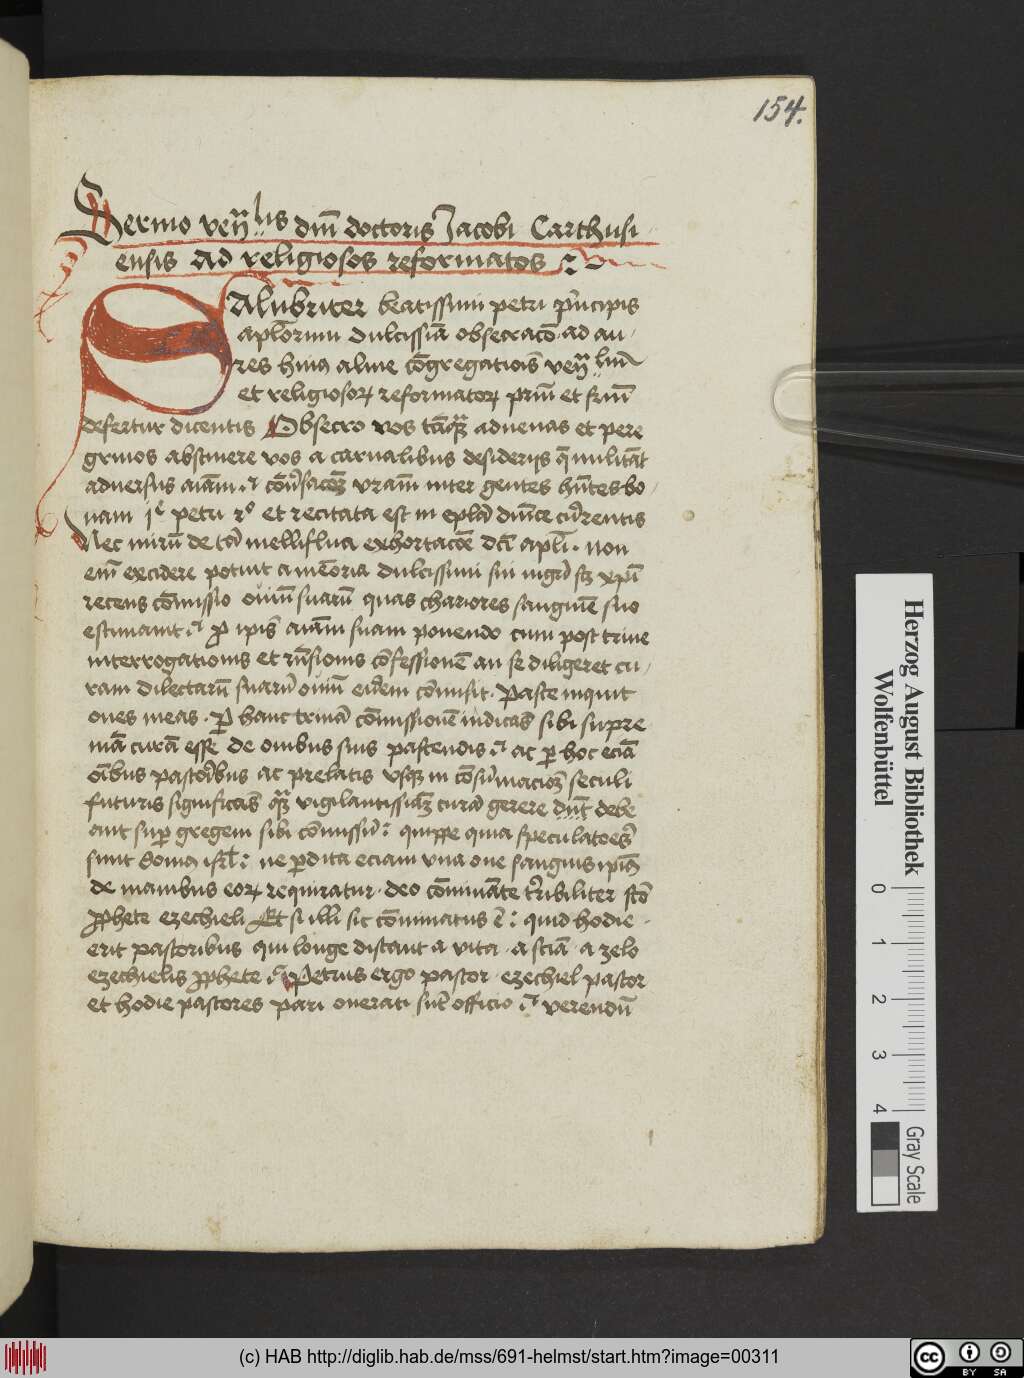 154.
Sermo ven̄lis dn̄i doctoris Jacobi Carthusi
ensis ad religiosos reformatos
Salubriter beatissimi petri p̄ncipis
apl̄orum dulcissīa obsecracō ad au
res huiꝰ alme cōgregatiōis ven̄liū
et religiosoꝝ reformatoꝝ prm̄ et frm̄
defertur dicentis Obsecro vos tāqꝫ aduenas et pere
grinos abstinere vos a carnalibus desiderijs q̄ militāt
aduersus aīam
vrām inter gentes hn̄tes bo
nam jᵉ petri 2° et recitata est in epl̄a dnīce cur̄entis
Nec mirū de ta mellifluā exhortacōe apl̄i non
em̄ excidere potuit a mēoria dulcissimi sui mgr̄i xp̄i
recens cōmissio ouiū suarū quas chariores sanguīe suo
estimauit ꝓ ip̄is aīam suam ponendo cum post trine
interrogationis et rn̄sionis cōfessionē an se diligeret cu
ram dilectarū suarū ouiū eidem cōmisit. Pasce inquit
oues meas. Per hanc trinā cōmissionē indicās sibi supre
mā curā esse de ouibus suis pascendis ac ꝑ hoc eciā
oībus pastoribus ac prelatis vsqꝫ in cōsūmacioꝫ seculi
futuris significās vigilantissimā curā gerere debe
ant suꝑ gregem sibi cōmissū: quippe quia speculatores
sunt domꝰ isrl̄: ne ꝑdita eciam vna oue sanguis ipīus
de manibus eoꝝ requiratur. deo cōmināte t̄ribiliter
ꝓphete ezechieli Et si illi sic cōminatus ē: quid hodie
erit pastoribus qui longe distant a vita. a sciā. a zelo
ezechielis ꝓphete Petrus ergo pastor. ezechiel pastor
et hodie pastores pari onerati sūt officio verendū
Herzog August Bibliothek
Wolfenbüttel
0 1 2 3 4
Gray Scale
(c) HAB http://diglib.hab.de/mss/691-helmst/start.htm?image=00311
cc BY SA